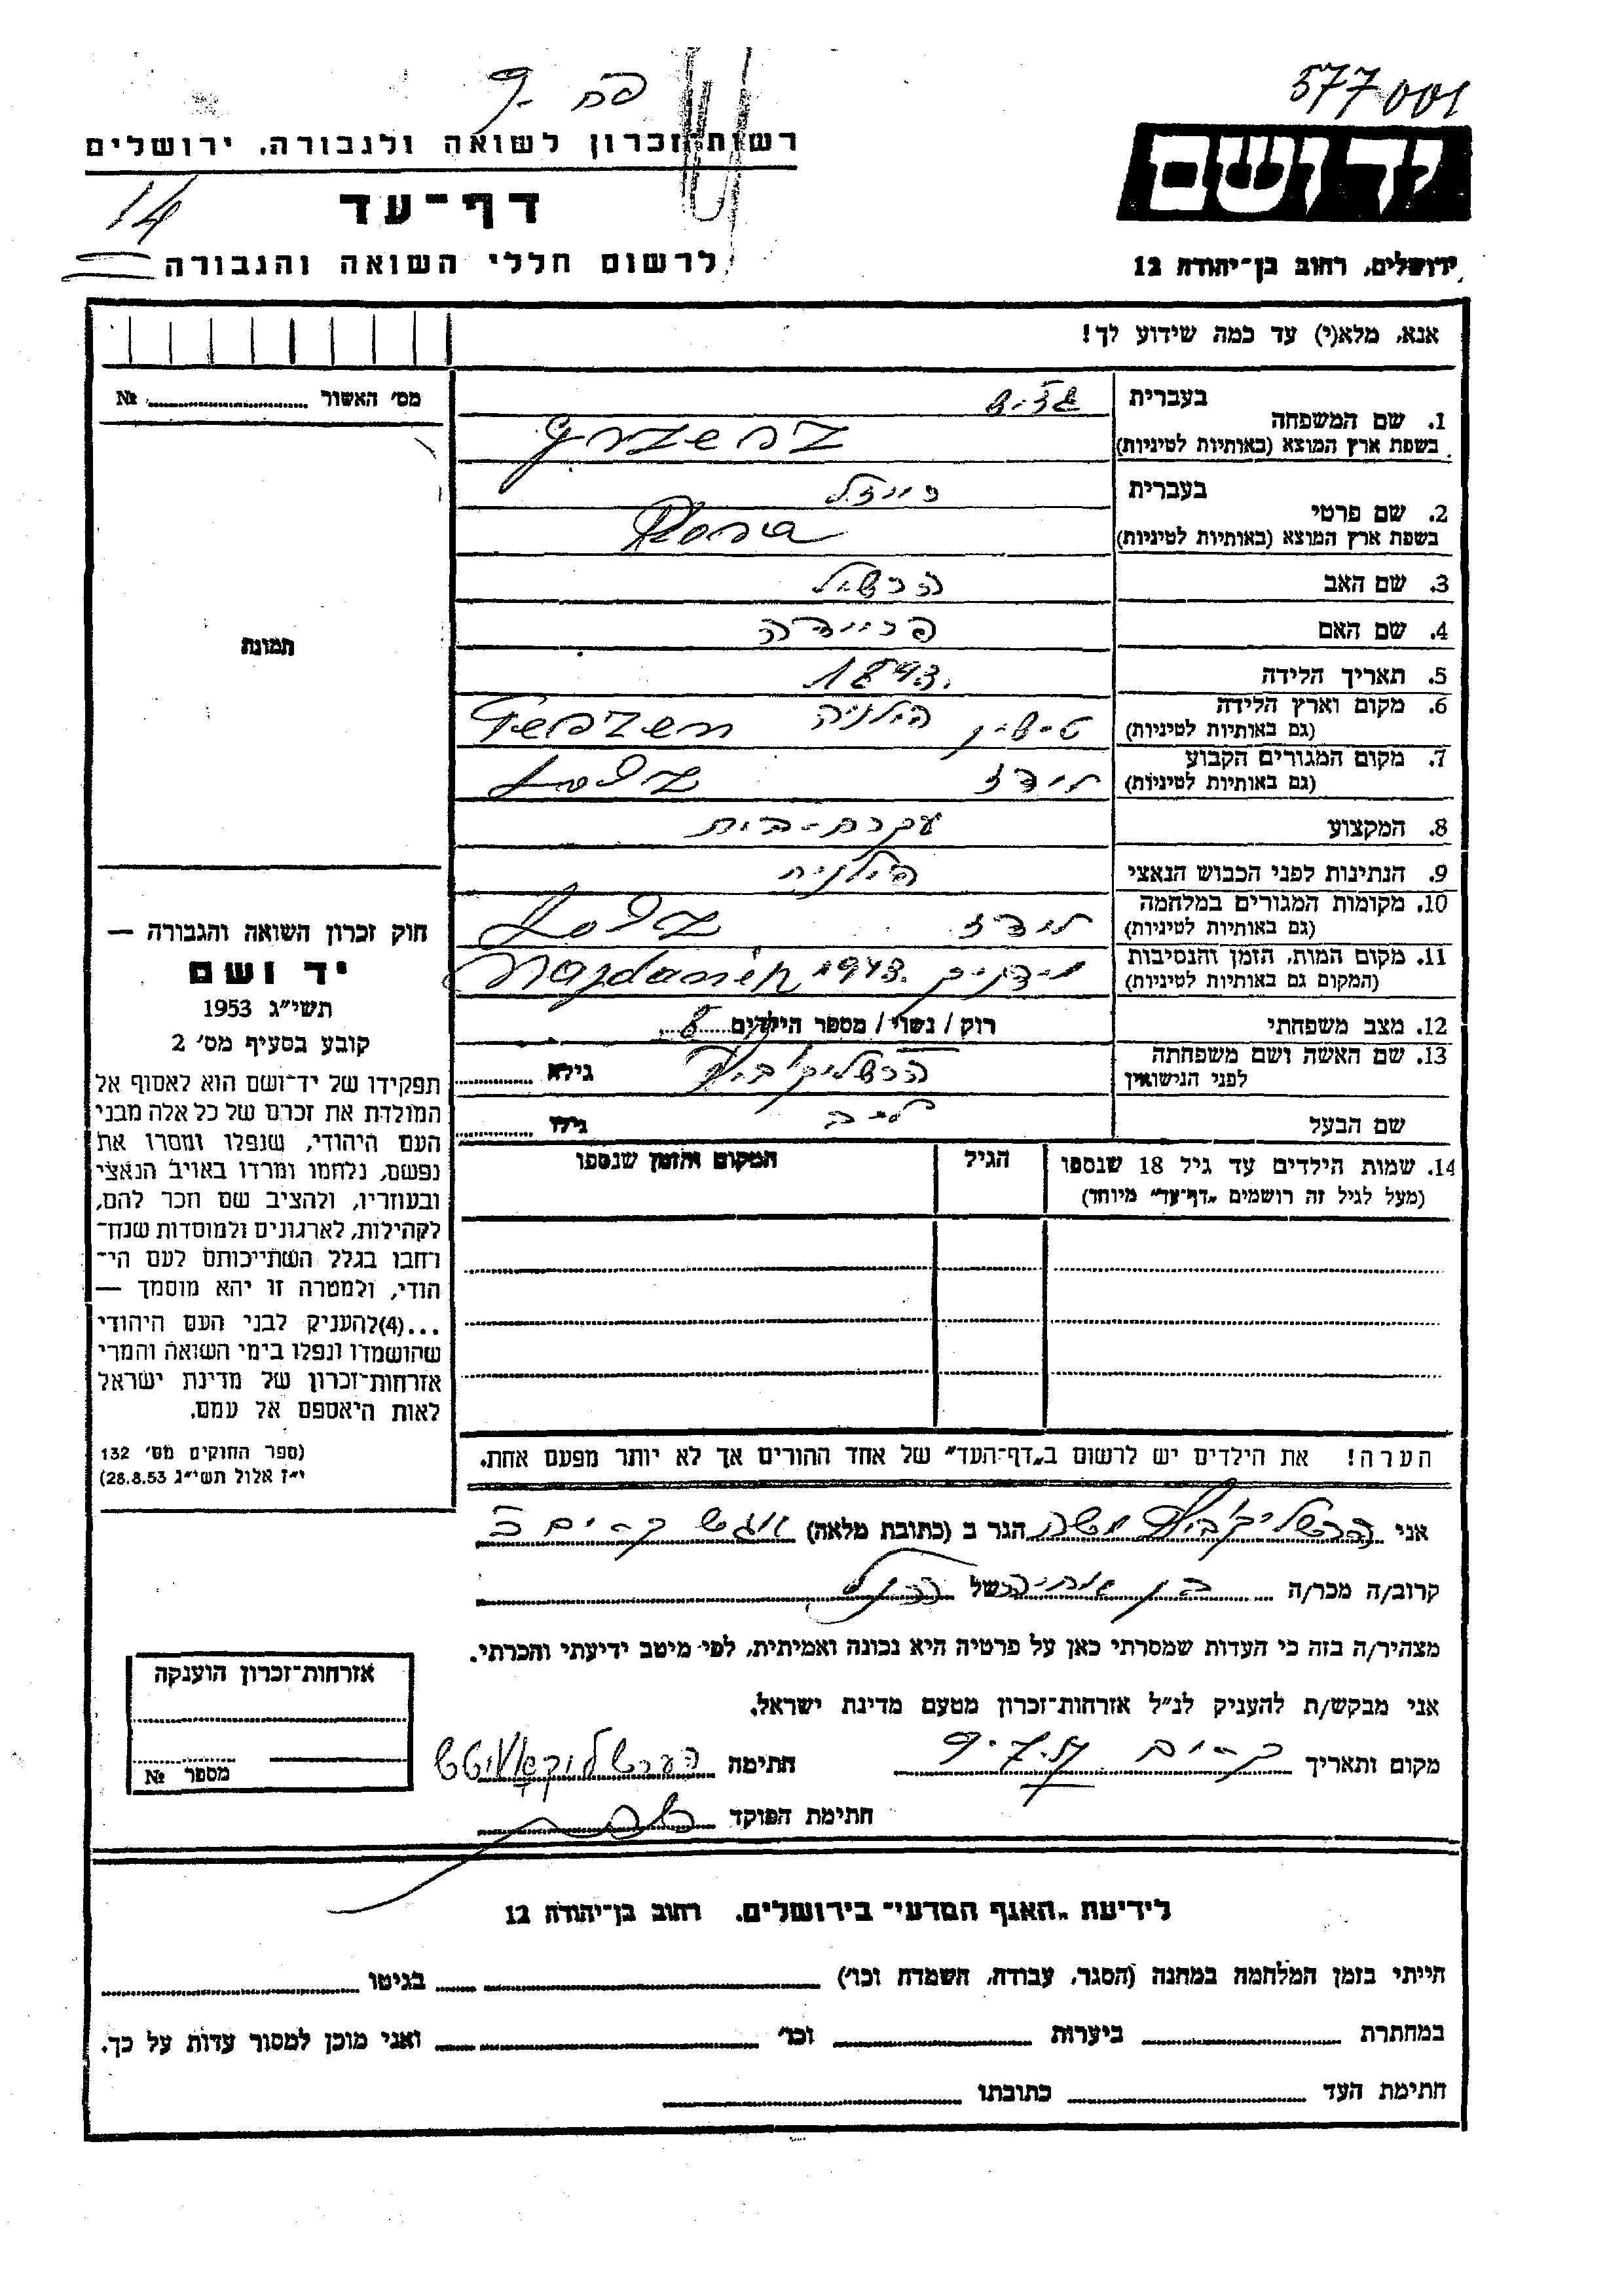 577001
רשות־זכרון לשואה ולגבורה, ירושלים
יד ושם
14
דף־עד
לרשום חללי השואה והגבורה
ירושלים, רחוב בן־יהודה 12
אנא, מלא(י) עד כמה שידוע לך!
מס' האשור № 
1. שם המשפחה
בעברית
בשפת ארץ המוצא (באותיות לטיניות)
2. שם פרטי
בעברית פייזל
בשפת ארץ המוצא (באותיות לטיניות)
3. שם האב הרשיל
4. שם האם פריידה
5. תאריך הלידה 1893.
6. מקום וארץ הלידה פולניה
(גם באותיות לטיניות)
7. מקום המגורים הקבוע לודז Łódz
(גם באותיות לטיניות)
8. המקצוע עקרת-בית
9. הנתינות לפני הכבוש הנאצי פולנית
10. מקומות המגורים במלחמה לודז Łódz
(גם באותיות לטיניות)
11. מקום המות, הזמן והנסיבות מידנק 1943. Majdanek
(המקום גם באותיות לטיניות)
12. מצב משפחתי רוק / נשוי / מספר הילדים 8
13. שם האשה ושם משפחתה הרשליקוביץ גילא
לפני הנישואין
שם הבעל ליב גילו
14. שמות הילדים עד גיל 18 שנספו הגיל המקום והזמן שנספו
(מעל לגיל זה רושמים „דף־עד" מיוחד)
הערה! את הילדים יש לרשום ב„דף־העד" של אחד ההורים אך לא יותר מפעם אחת.
תמונה
חוק זכרון השואה והגבורה —
יד ושם
תשי"ג 1953
קובע בסעיף מס' 2
תפקידו של יד־ושם הוא לאסוף אל
המולדת את זכרם של כל אלה מבני
העם היהודי, שנפלו ומסרו את
נפשם, נלחמו ומרדו באויב הנאצי
ובעוזריו, ולהציב שם וזכר להם,
לקהילות, לארגונים ולמוסדות שנח־
רחבו בגלל השתייכותם לעם הי־
הודי, ולמטרה זו יהא מוסמך —
...(4)להעניק לבני העם היהודי
שהושמדו ונפלו בימי השואה והמרי
אזרחות־זכרון של מדינת ישראל
לאות היאספם אל עמם.
(ספר החוקים מס' 132
י"ז אלול תשי"ג 28.8.53)
אני הרשליקוביץ משה הגר ב (כתובת מלאה)
קרוב/ה מכר/ה של הנ"ל
מצהיר/ה בזה כי העדות שמסרתי כאן על פרטיה היא נכונה ואמיתית, לפי מיטב ידיעתי והכרתי.
אני מבקש/ת להעניק לנ"ל אזרחות־זכרון מטעם מדינת ישראל.
מקום ותאריך 9.7.57 חתימה
חתימת הפוקד
אזרחות־זכרון הוענקה
מספר №
לידיעת „האגף המדעי" בירושלים. רחוב בן־יהודה 12
הייתי בזמן המלחמה במחנה (הסגר, עבודה, השמדה וכו') בגיטו
במחתרת ביערות וכו' ואני מוכן למסור עדות על כך.
חתימת העד כתובתו